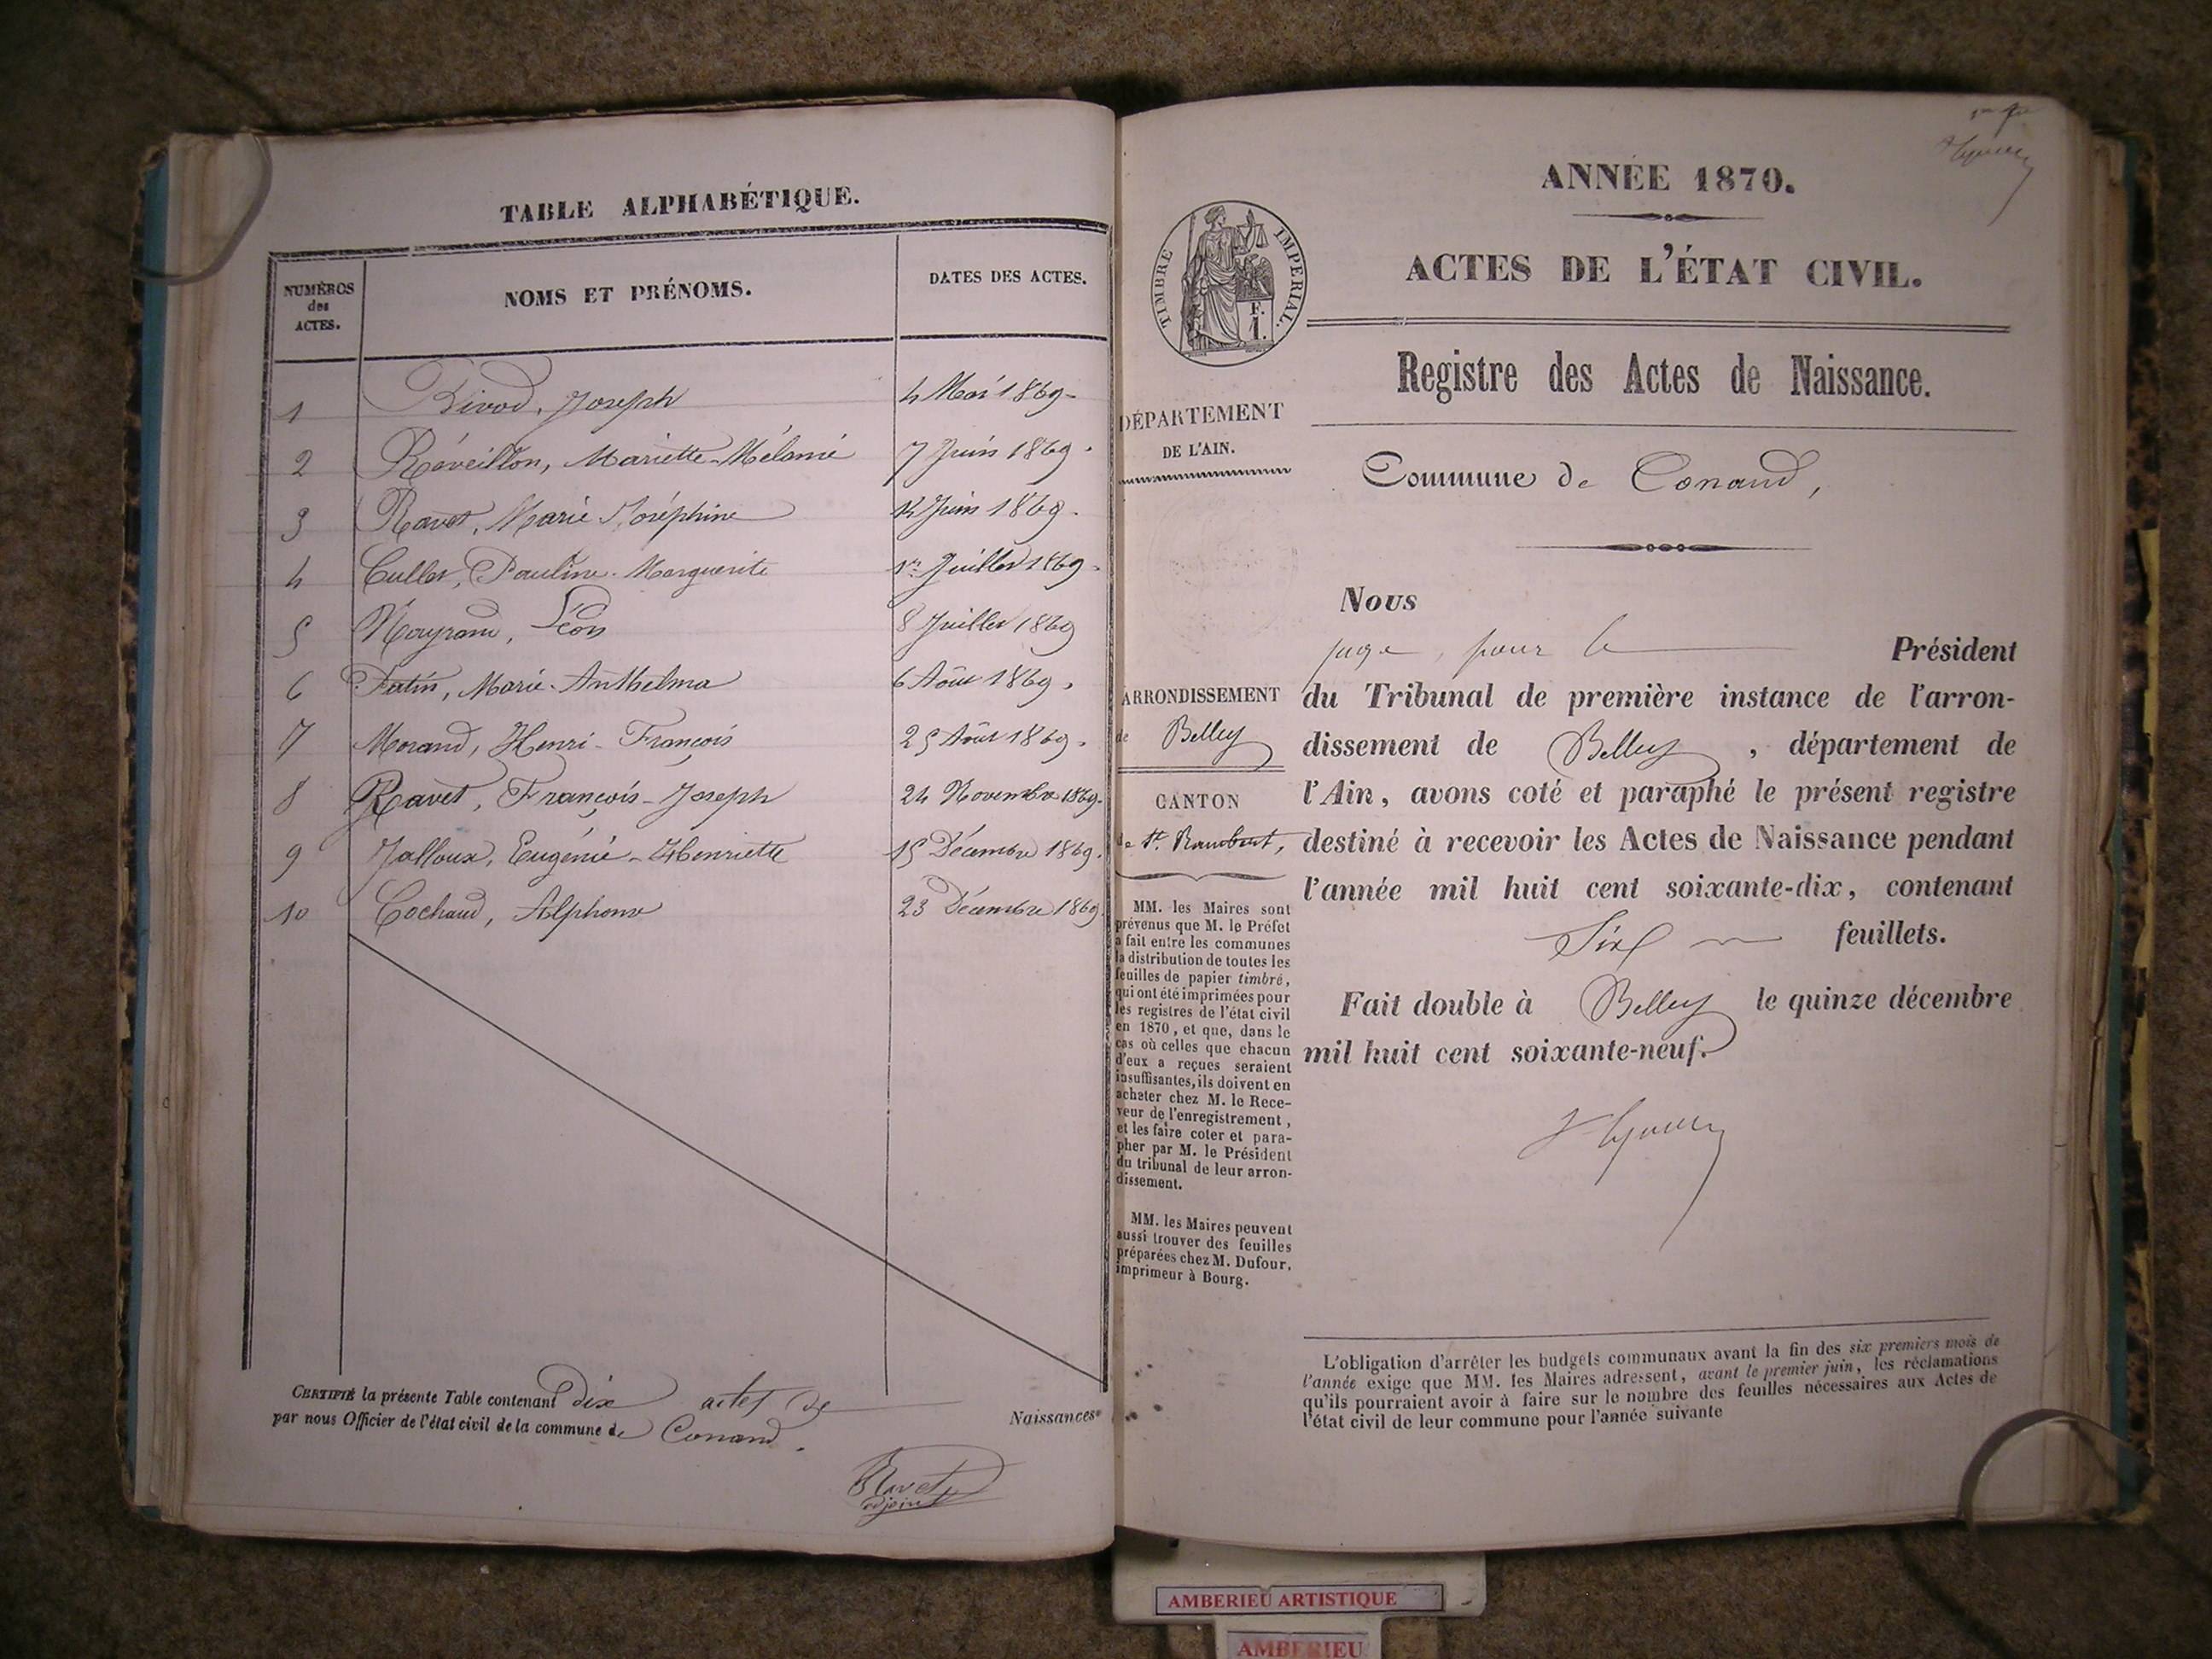 TABLE ALPHABÉTIQUE.
NUMÉROS des ACTES.
NOMS ET PRÉNOMS.
DATES DES ACTES.
1 Rivod, Joseph 4 Mai 1869
2 Réveillon, Mariette-Mélanie 7 Juin 1869.
3 Ravet, Marie Joséphine 14 Juin 1869.
4 Cullet, Pauline-Marguerite 1er Juillet 1869.
5 Léon 8 Juillet 1869
6 Marie-Anthelma 6 Août 1869.
7 Morand, Henri-François 25 Août 1869.
8 Ravet, François-Joseph 24 Novembre 1869.
9 Jalloux, Eugénie-Henriette 15 Décembre 1869.
10 Cochaud, Alphonse 23 Décembre 1869.
CERTIFIÉ la présente Table contenant dix actes de Naissances
par nous Officier de l'état civil de la commune de Conand.
Ravet
adjoint
ANNÉE 1870.
ACTES DE L'ÉTAT CIVIL.
TIMBRE IMPERIAL.
F. 1.
Registre des Actes de Naissance.
DÉPARTEMENT
DE L'AIN.
Commune de Conand,
ARRONDISSEMENT
de Belley
CANTON
de St. Rambert,
MM. les Maires sont
prévenus que M. le Préfet
a fait entre les communes
la distribution de toutes les
feuilles de papier timbré,
qui ont été imprimées pour
les registres de l'état civil
en 1870, et que, dans le
cas où celles que chacun
d'eux a reçues seraient
insuffisantes, ils doivent en
acheter chez M. le Rece-
veur de l'enregistrement,
et les faire coter et para-
pher par M. le Président
du tribunal de leur arron-
dissement.
MM. les Maires peuvent
aussi trouver des feuilles
préparées chez M. Dufour,
imprimeur à Bourg.
Nous
juge, pour le Président
du Tribunal de première instance de l'arron-
dissement de Belley, département de
l'Ain, avons coté et paraphé le présent registre
destiné à recevoir les Actes de Naissance pendant
l'année mil huit cent soixante-dix, contenant
Six feuillets.
Fait double à Belley le quinze décembre
mil huit cent soixante-neuf.
L'obligation d'arrêter les budgets communaux avant la fin des six premiers mois de
l'année exige que MM. les Maires adressent, avant le premier juin, les réclamations
qu'ils pourraient avoir à faire sur le nombre des feuilles nécessaires aux Actes de
l'état civil de leur commune pour l'année suivante
AMBERIEU ARTISTIQUE
AMBERIEU